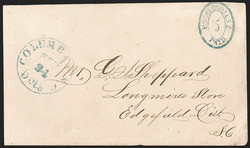 COLUMBIA
24
S.C.
5
PAID
G S Sheppard
Longmires Store
Edgefield Dist
S.C